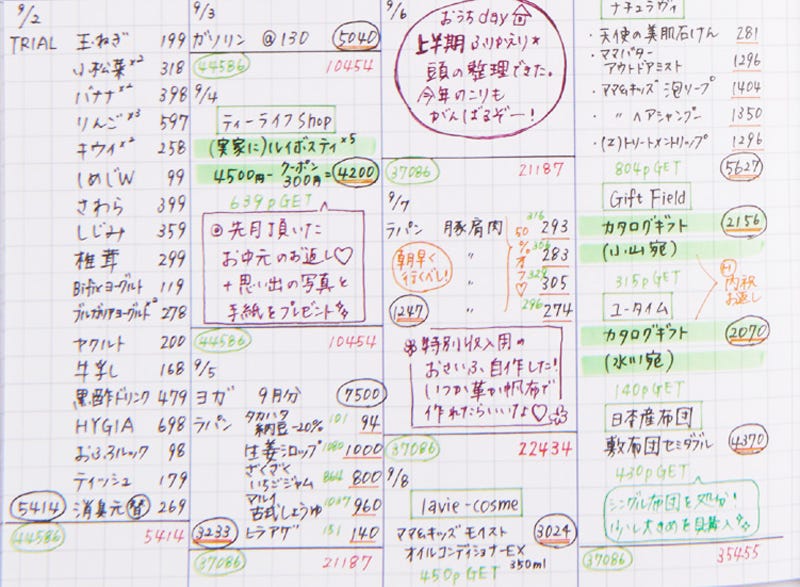 9/2
TRIAL 玉ねぎ 199
小松菜×2 318
バナナ×2 398
りんご×3 597
キウイ×2 258
しめじW 99
さわら 399
しじみ 359
椎茸 299
Bifixヨーグルト 119
ブルガリアヨーグルト×2 278
ヤクルト 200
牛乳 168
黒酢ドリンク 479
HYGIA 698
おふろルック 98
ティッシュ 179
5414 消臭元 替 269
44586 5414
9/3
ガソリン @130 5040
44586 10454
9/4
ティーライフShop
(実家に)ルイボスティ×5
4500円−クーポン300円=4200
639pGET
◎先月頂いた
お中元のお返し♡
+思い出の写真と
手紙をプレゼント
44586 10454
9/5
ヨガ 9月分 7500
ラパン タカハタ
納豆-20% 101 94
生姜シロップ 1080 1000
ざくざく
いちごジャム 864 800
マルイ
古式しょうゆ 1037 960
3233 ヒラアゲ 151 140
37086 21187
9/6
おうちday
上半期ふりかえり*
頭の整理できた。
今年のこりも
がんばるぞー!
37086 21187
9/7
ラパン 豚肩肉 316 293
〃 306 283
〃 329 305
〃 296 274
50%オフ♡
朝早く
行くべし!
1247
特別収入用の
おさいふ、自作した!
いつか革か帆布で
作れたらいいな♡
37086 22434
9/8
lavie-cosme
ママ&キッズ モイスト 3024
オイルコンディショナーEX
350ml
450pGET
ナチュラヴィ
・天使の美肌石けん 281
・ママバター
アウトドアミスト 1296
・ママ&キッズ 泡ソープ 1404
・ 〃 ヘアシャンプー 1350
・(Z)トリートメントリップ 1296
804pGET 5627
Gift Field
カタログギフト 2156
(小山宛)
315pGET
内祝
お返し
ユータイム
カタログギフト 2070
(水川宛)
140pGET
日本産布団
敷布団セミダブル 4370
430pGET
シングル布団を処分!
少し大きめを購入
37086 35455